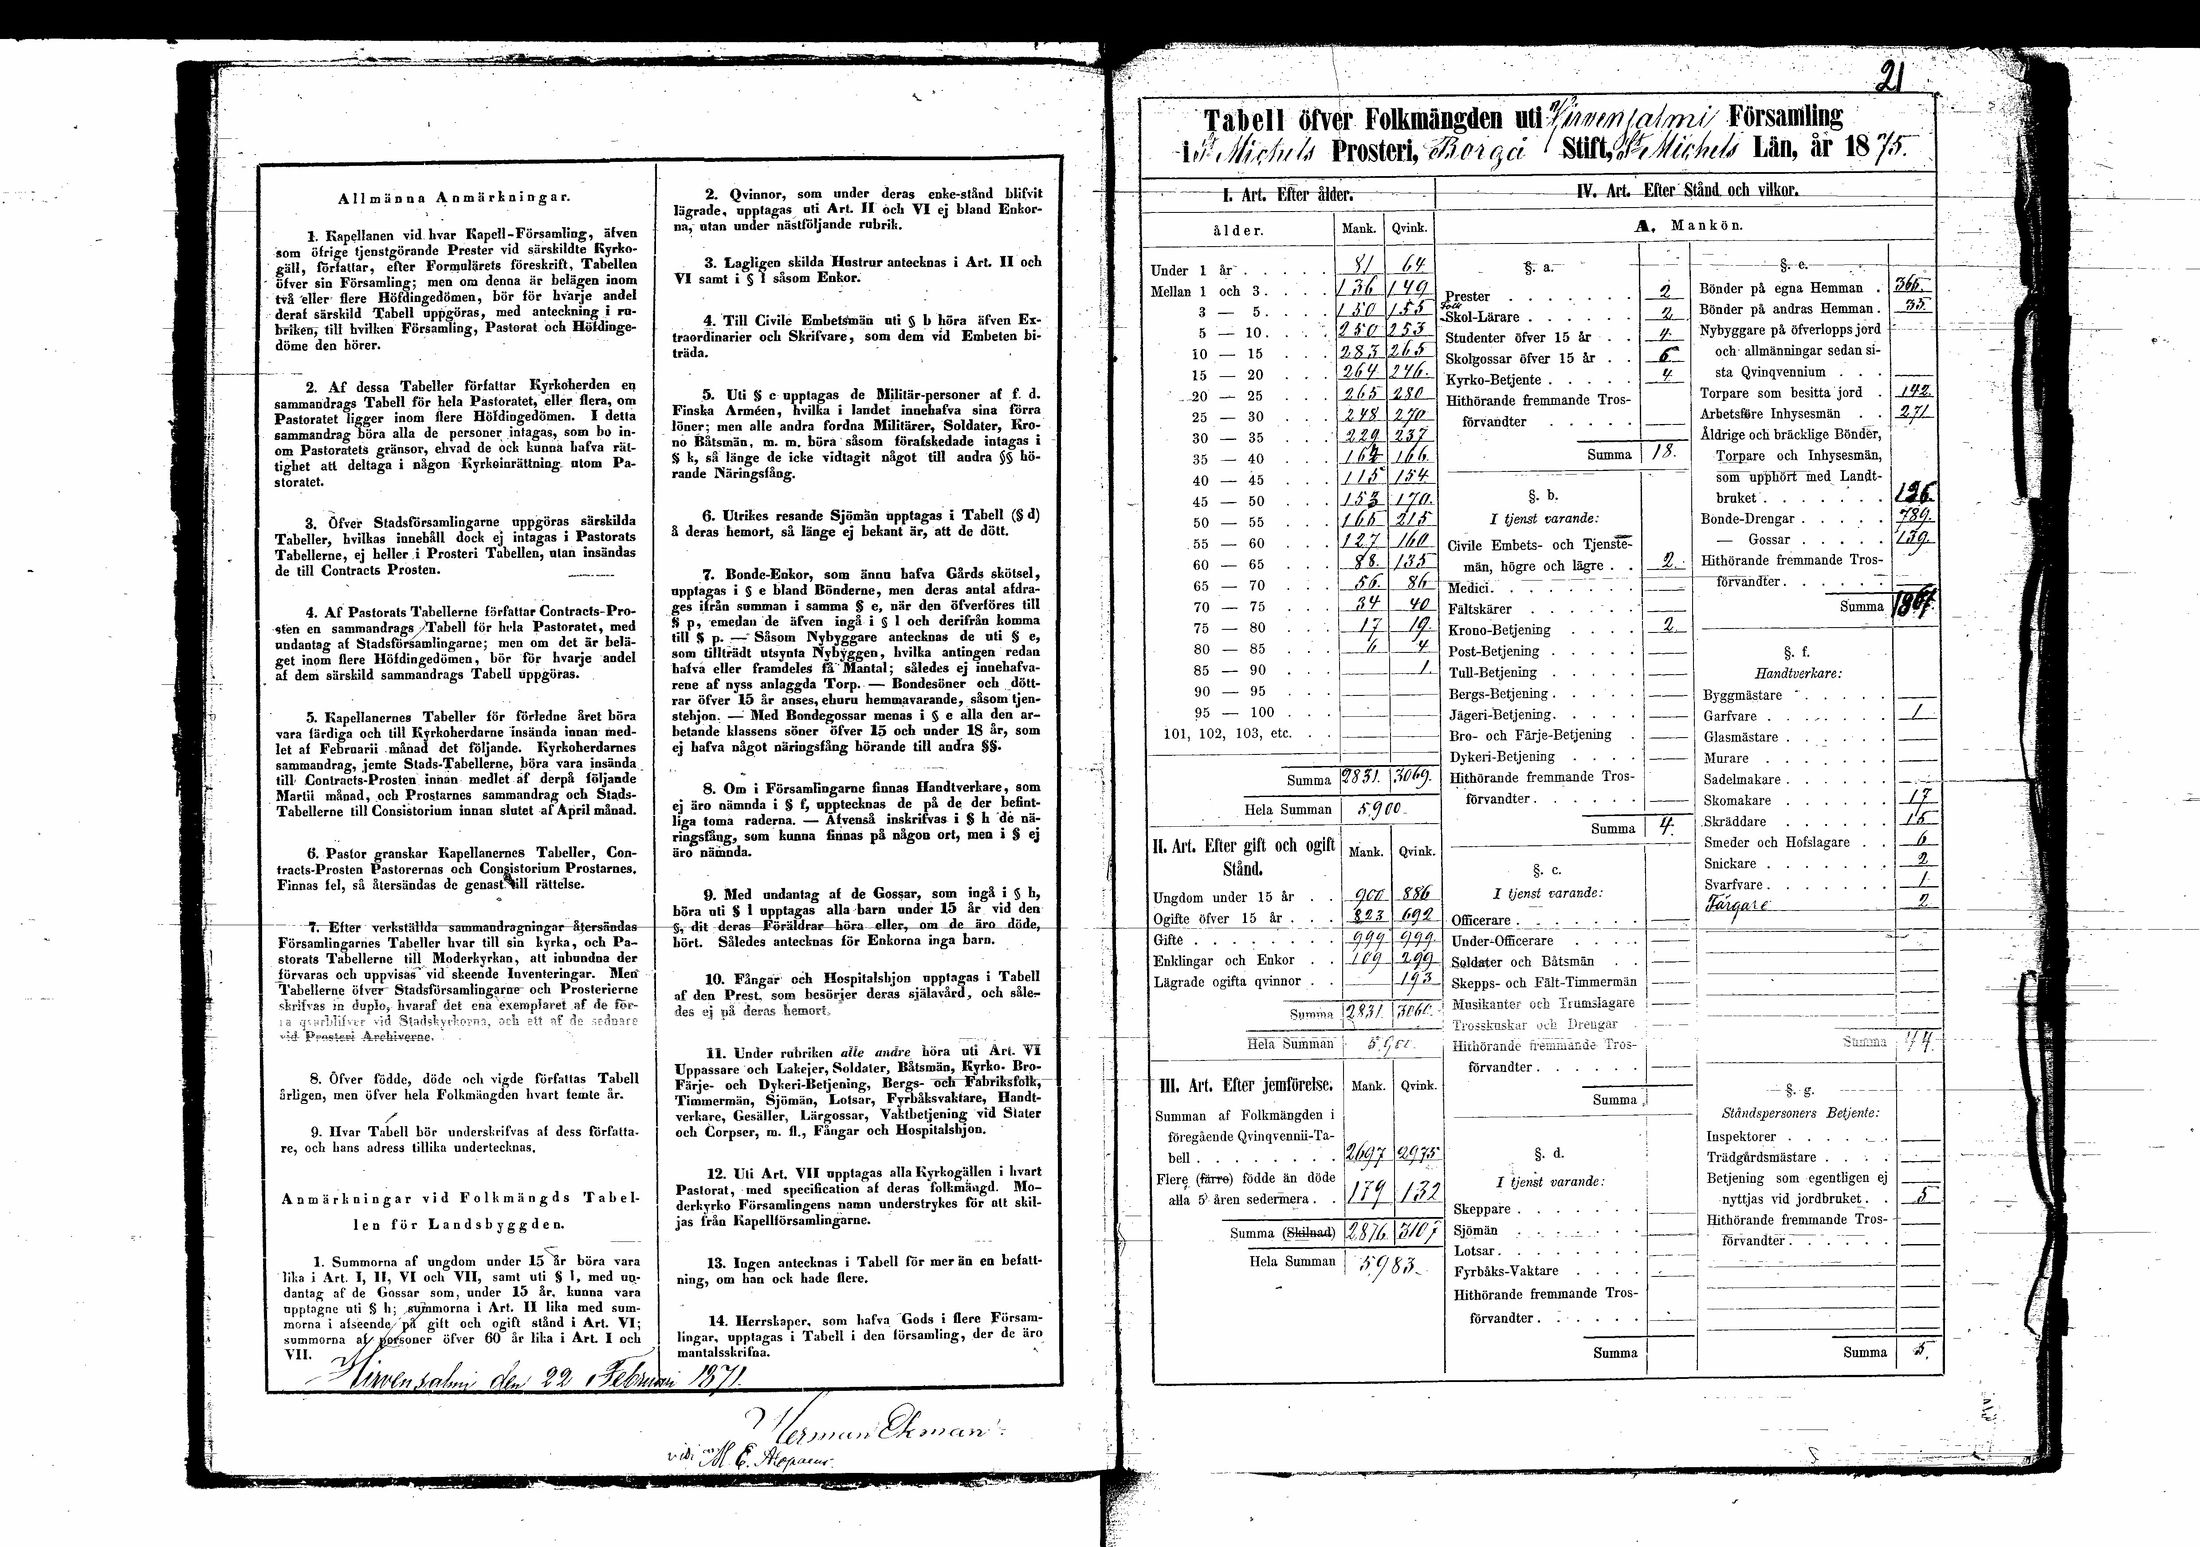 Allmänna Anmärkningar.
1. Kapellanen vid hvar Kapell-Församling, äfven
som öfrige tjenstgörande Prester vid särskildte Kyrko-
gäll, författar, efter Formulärets föreskrift, Tabellen
öfver sin Församling; men om denna är belägen inom
två eller flere Höfdingedömen, bör för hvarje andel
deraf särskild Tabell uppgöras, med anteckning i ru-
briken, till hvilken Församling, Pastorat och Höfdinge-
döme den hörer.
2. Af dessa Tabeller författar Kyrkoherden en
sammandrags Tabell för hela Pastoratet, eller flera, om
Pastoratet ligger inom flere Höfdingedömen. I detta
sammandrag böra alla de personer intagas, som bo in-
om Pastoratets gränsor, ehvad de ock kunna hafva rät-
tighet att deltaga i någon Kyrkoinrättning utom Pa-
storatet.
3. Öfver Stadsförsamlingarne uppgöras särskilda
Tabeller, hvilkas innehåll dock ej intages i Pastorats
Tabellerne, ej heller i Prosteri Tabellen, utan insändas
de till Contracts Prosten.
4. Af Pastorats Tabellerne författar Contracts-Pro-
sten en sammandrags Tabell för hela Pastoratet, med
undantag af Stadsförsamlingarne; men om det är belä-
get inom flere Höfdingedömen, bör för hvarje andel
af dem särskild sammandrags Tabell uppgöras.
5. Kapellanernes Tabeller för förledne året böra
vara färdiga och till Kyrkoherdarne insända innan med-
let af Februarii månad det följande. Kyrkoherdarnes
sammandrag, jemte Stads-Tabellerne, böra vara insända
till Contracts-Prosten innan medlet af derpå följande
Martii månad, och Prostarnes sammandrag och Stads-
Tabellerne till Consistorium innan slutet af April månad.
6. Pastor granskar Kapellanernes Tabeller, Con-
tracts-Prosten Pastorernas och Consistorium Prostarnes.
Finnas fel, så återsändas de genast till rättelse.
7. Efter verkställda sammandragningar återsändas
Församlingarnes Tabeller hvar till sin kyrka, och Pa-
storats Tabellerne till Moderkyrkan, att inbundna der
förvaras och uppvisas vid skeende Inventeringar. Men
Tabellerne öfver Stadsförsamlingarne och Prosterierne
skrifvas in duplo, hvaraf det ena exemplaret af de för-
ra qvarblifver vid Stadskyrkorna, och ett af de sednare
vid Prosteri Archiverne.
8. Öfver födde, döde och vigde författas Tabell
årligen, men öfver hela Folkmängden hvart femte år.
9. Hvar Tabell bör underskrifvas af dess författa-
re, och hans adress tillika undertecknas.
Anmärkningar vid Folkmängds Tabel-
len för Landsbyggden.
1. Summorna af ungdom under 15 år böra vara
lika i Art. I, II, VI och VII, samt uti § l, med un-
dantag af de Gossar som, under 15 år, kunna vara
upptagne uti § h; summorna i Art. II lika med sum-
morna i afseende på gift och ogift stånd i Art. VI;
summorna af personer öfver 60 år lika i Art. I och
VII.
2. Qvinnor, som under deras enke-stånd blifvit
lägrade, upptagas uti Art. II och VI ej bland Enkor-
na, utan under nästföljande rubrik.
3. Lagligen skilda Hustrur antecknas i Art. II och
VI samt i § l såsom Enkor.
4. Till Civile Embetsmän uti § b höra äfven Ex-
traordinarier och Skrifvare, som dem vid Embeten bi-
träda.
5. Uti § c upptagas de Militär-personer af f. d.
Finska Arméen, hvilka i landet innehafva sina förra
löner; men alle andra fordna Militärer, Soldater, Kro-
no Båtsmän, m. m. böra såsom förafskedade intagas i
§ k, så länge de icke vidtagit något till andra §§ hö-
rande Näringsfång.
6. Utrikes resande Sjömän upptagas i Tabell (§ d)
å deras hemort, så länge ej bekant är, att de dött.
7. Bonde-Enkor, som ännu hafva Gårds skötsel,
upptagas i § e bland Bönderne, men deras antal afdra-
ges ifrån summan i samma § e, när den öfverföres till
§ p, emedan de äfven ingå i § l och derifrån komma
till § p. — Såsom Nybyggare antecknas de uti § e,
som tillträdt utsynta Nybyggen, hvilka antingen redan
hafva eller framdeles få Mantal; således ej innehafva-
rene af nyss anlaggda Torp. — Bondesöner och dött-
rar öfver 15 år anses, ehuru hemmavarande, såsom tjen-
stehjon. — Med Bondegossar menas i § e alla den ar-
betande klassens söner öfver 15 och under 18 år, som
ej hafva något näringsfång hörande till andra §§.
8. Om i Församlingarne finnas Handtverkare, som
ej äro nämnda i § f, upptecknas de på de der befint-
liga toma raderna. — Äfvenså inskrifvas i § h de nä-
ringsfång, som kunna finnas på någon ort, men i § ej
äro nämnda.
9. Med undantag af de Gossar, som ingå i § h,
böra uti § l upptagas alla barn under 15 år vid den
§, dit deras Föräldrar höra eller, om de äro döde,
hört. Således antecknas för Enkorna inga barn.
10. Fångar och Hospitalshjon upptagas i Tabell
af den Prest, som besörjer deras själavård, och såle-
des ej på deras hemort.
11. Under rubriken alle andre höra uti Art. VI
Uppassare och Lakejer, Soldater, Båtsmän, Kyrko- Bro-
Färje- och Dykeri-Betjening, Bergs- och Fabriksfolk,
Timmermän, Sjömän, Lotsar, Fyrbåksvaktare, Handt-
verkare, Gesäller, Lärgossar, Vaktbetjening vid Stater
och Corpser, m. fl., Fångar och Hospitalshjon.
12. Uti Art. VII upptagas alla Kyrkogällen i hvart
Pastorat, med specification af deras folkmängd. Mo-
derkyrko Församlingens namn understrykes för att skil-
jas från Kapellförsamlingarne.
13. Ingen antecknas i Tabell för mer än en befatt-
ning, om han ock hade flere.
14. Herrskaper, som hafva Gods i flere Försam-
lingar, upptagas i Tabell i den församling, der de äro
mantalsskrifna.
Hirvensalmi den 22 Februari 1871.
Herman Ekman
vidi M. E. Alopaeus
21
Tabell öfver Folkmängden uti Hirvensalmi Församling
i St Michels Prosteri, Borgå Stift, St Michels Län, år 1875.
I. Art. Efter ålder.
ålder. Mank. Qvink.
Under 1 år 81 64
Mellan 1 och 3 136 149
3 — 5 150 155
5 — 10 250 253
10 — 15 283 265
15 — 20 264 246.
20 — 25 265 280
25 — 30 248 270
30 — 35 229 237
35 — 40 164 166.
40 — 45 115 154
45 — 50 153 170.
50 — 55 165 215
55 — 60 127 160
60 — 65 88. 135
65 — 70 56. 86
70 — 75 34 40
75 — 80 17 19.
80 — 85 6 4
85 — 90 — 1.
90 — 95
95 — 100
101, 102, 103, etc.
Summa 2831. 3069.
Hela Summan 5900.
II. Art. Efter gift och ogift Stånd. Mank. Qvink.
Ungdom under 15 år 900 886
Ogifte öfver 15 år 823 692
Gifte 999 999.
Enklingar och Enkor 109 299
Lägrade ogifta qvinnor — 193
Summa 2831. 3069.
Hela Summan 5900.
III. Art. Efter jemförelse. Mank. Qvink.
Summan af Folkmängden i
föregående Qvinqvennii-Ta-
bell 2697 2975
Flere (färre) födde än döde
alla 5 åren sedermera 179 132
Summa (Skilnad) 2876. 3107
Hela Summan 5983.
IV. Art. Efter Stånd och vilkor.
A. Mankön.
§. a.
Prester 2
Folk
Skol-Lärare 2
Studenter öfver 15 år 4
Skolgossar öfver 15 år 6
Kyrko-Betjente 4
Hithörande fremmande Tros-
förvandter —
Summa 18.
§. b.
I tjenst varande:
Civile Embets- och Tjenste-
män, högre och lägre 2.
Medici —
Fältskärer —
Krono-Betjening 2.
Post-Betjening —
Tull-Betjening —
Bergs-Betjening —
Jägeri-Betjening —
Bro- och Färje-Betjening —
Dykeri-Betjening —
Hithörande fremmande Tros-
förvandter —
Summa 4.
§. c.
I tjenst varande:
Officerare —
Under-Officerare —
Soldater och Båtsmän —
Skepps- och Fält-Timmermän
Musikanter och Trumslagare
Trosskuskar och Drengar
Hithörande fremmande Tros-
förvandter
Summa
§. d.
I tjenst varande:
Skeppare
Sjömän
Lotsar
Fyrbåks-Vaktare
Hithörande fremmande Tros-
förvandter
Summa
§. e.
Bönder på egna Hemman 366.
Bönder på andras Hemman 35.
Nybyggare på öfverlopps jord
och allmänningar sedan si-
sta Qvinqvennium —
Torpare som besitta jord 142.
Arbetsföre Inhysesmän 271
Åldrige och bräcklige Bönder,
Torpare och Inhysesmän,
som upphört med Landt-
bruket
Bonde-Drengar 789.
— Gossar 139.
Hithörande fremmande Tros-
förvandter
Summa
§. f.
Handtverkare:
Byggmästare —
Garfvare 1
Glasmästare —
Murare —
Sadelmakare —
Skomakare 17
Skräddare 15
Smeder och Hofslagare 6
Snickare 2
Svarfvare 1
Färgare 2
Summa 44.
§. g.
Ståndspersoners Betjente:
Inspektorer —
Trädgårdsmästare —
Betjening som egentligen ej
nyttjas vid jordbruket 5
Hithörande fremmande Tros-
förvandter
Summa 5.